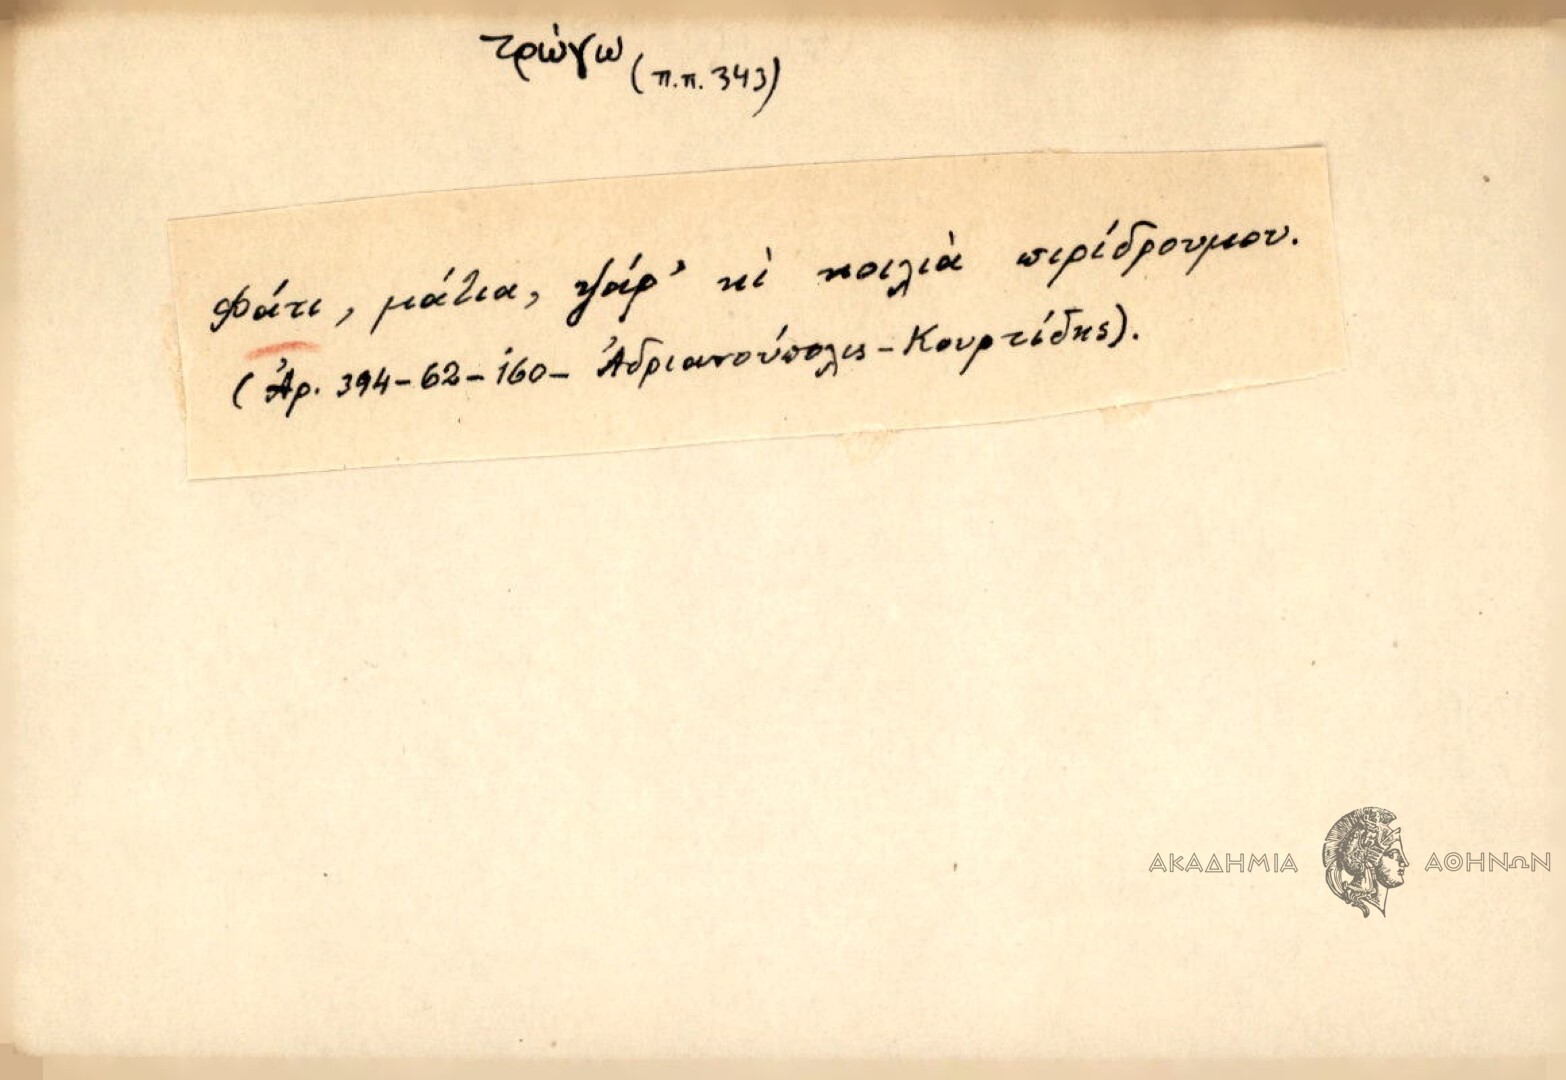 τρώγω (π.π. 343)
Φάτι, μάτια, ψάρ' κὶ κοιλιὰ πιρίδρουμου.
(Ἀρ. 394-62-160- Ἀδριανούπολις - Κουρτίδης).
ΑΚΑΔΗΜΙΑ ΑΘΗΝΩΝ